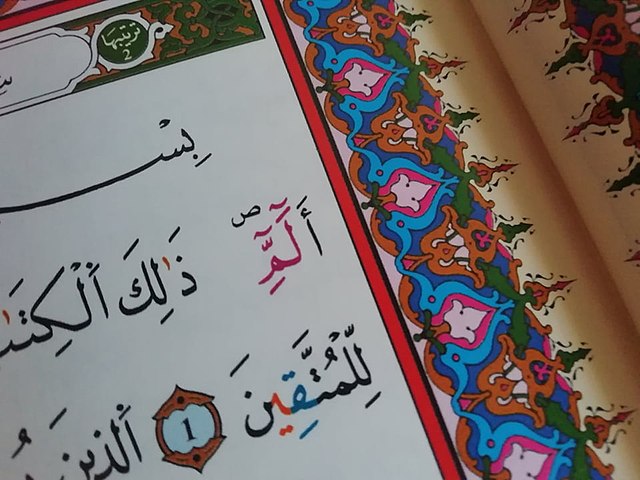 ترتيبها 2
بِسْـــ
أَلَٓمِّٓ ص ذَٰلِكَ اَلْكِتَٰ
لِّلْمُتَّقِينَ 1 اَلذِينَ